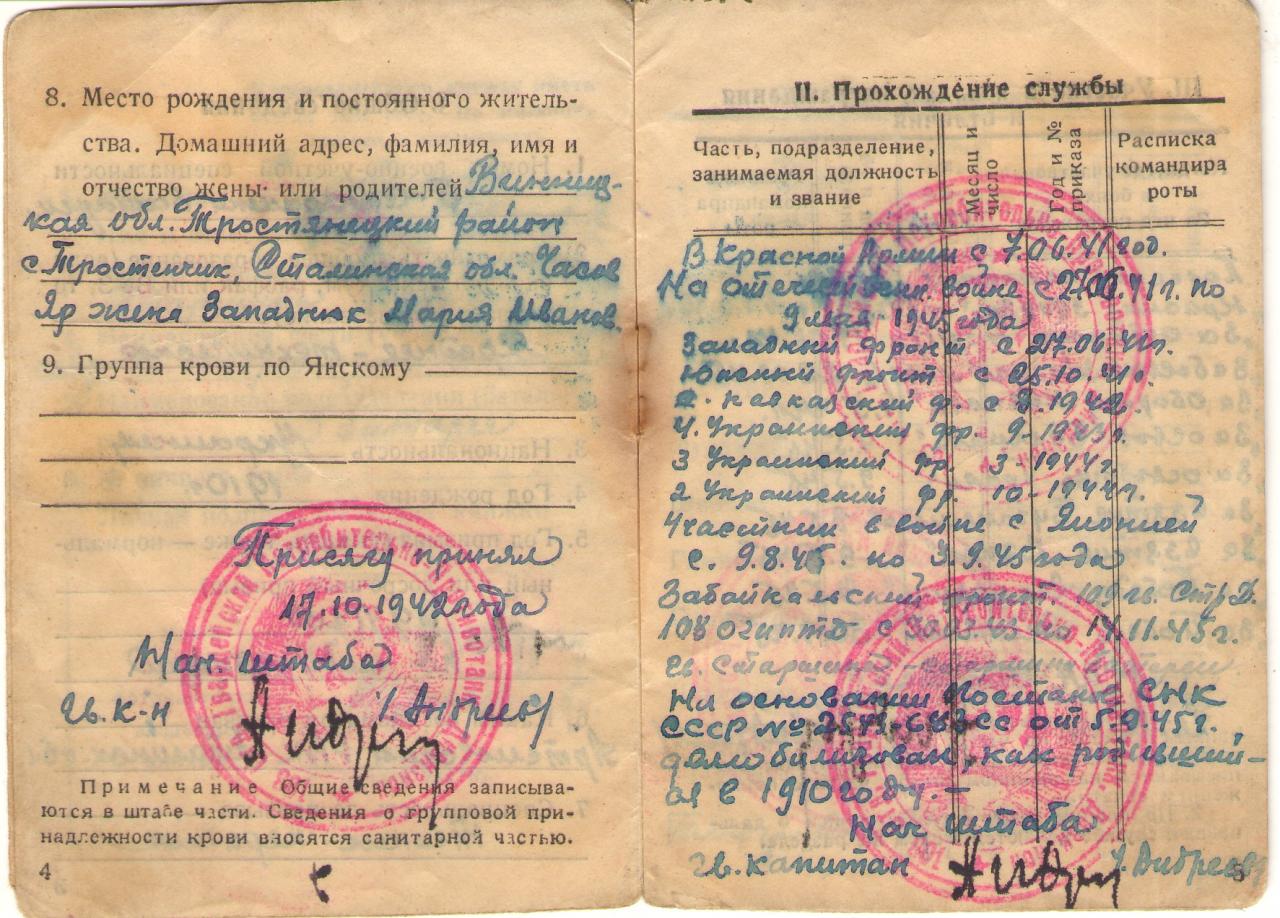 8. Место рождения и постоянного житель-
ства. Домашний адрес, фамилия, имя и
отчество жены или родителей Винниц-
кая обл. Тростянецкий район
с. Тростенчик, Сталинская обл. Часов
Яр жена Западнюк Мария Иванов.
9. Группа крови по Янскому
Присягу принял
17.10.1942 года
Нач. штаба
гв. к-н /Андреев/
Примечание Общие сведения записыва-
ются в штабе части. Сведения о групповой при-
надлежности крови вносятся санитарной частью.
4
II. Прохождение службы
Часть, подразделение, занимаемая должность и звание
Месяц и число
Год и № приказа
Расписка командира роты
В Красной Армии с 7.06.41 год.
На отечествен. войне с 27.06.41 г. по
9 мая 1945 года
Западный фронт с 27.06.41 г.
Южный фронт с 25.10.41 г.
кавказский ф. с 8.1942 г.
4. Украинский фр. 9-1943 г.
3 Украинский фр. 3-1944 г.
2 Украинский фр. 10-1944 г.
Участник в войне с Японией
с. 9.8.45. по 3.9.45 года
Забайкальский фронт. 109 гв. Стр. Д.
108 с по 14.11.45 г.
гв. Старшина
На основании Постанов. СНК
СССР № от 5.9.45 г.
демобилизован, как родивший-
ся в 1910 году. —
Нач. штаба
гв. капитан /Андреев/
5